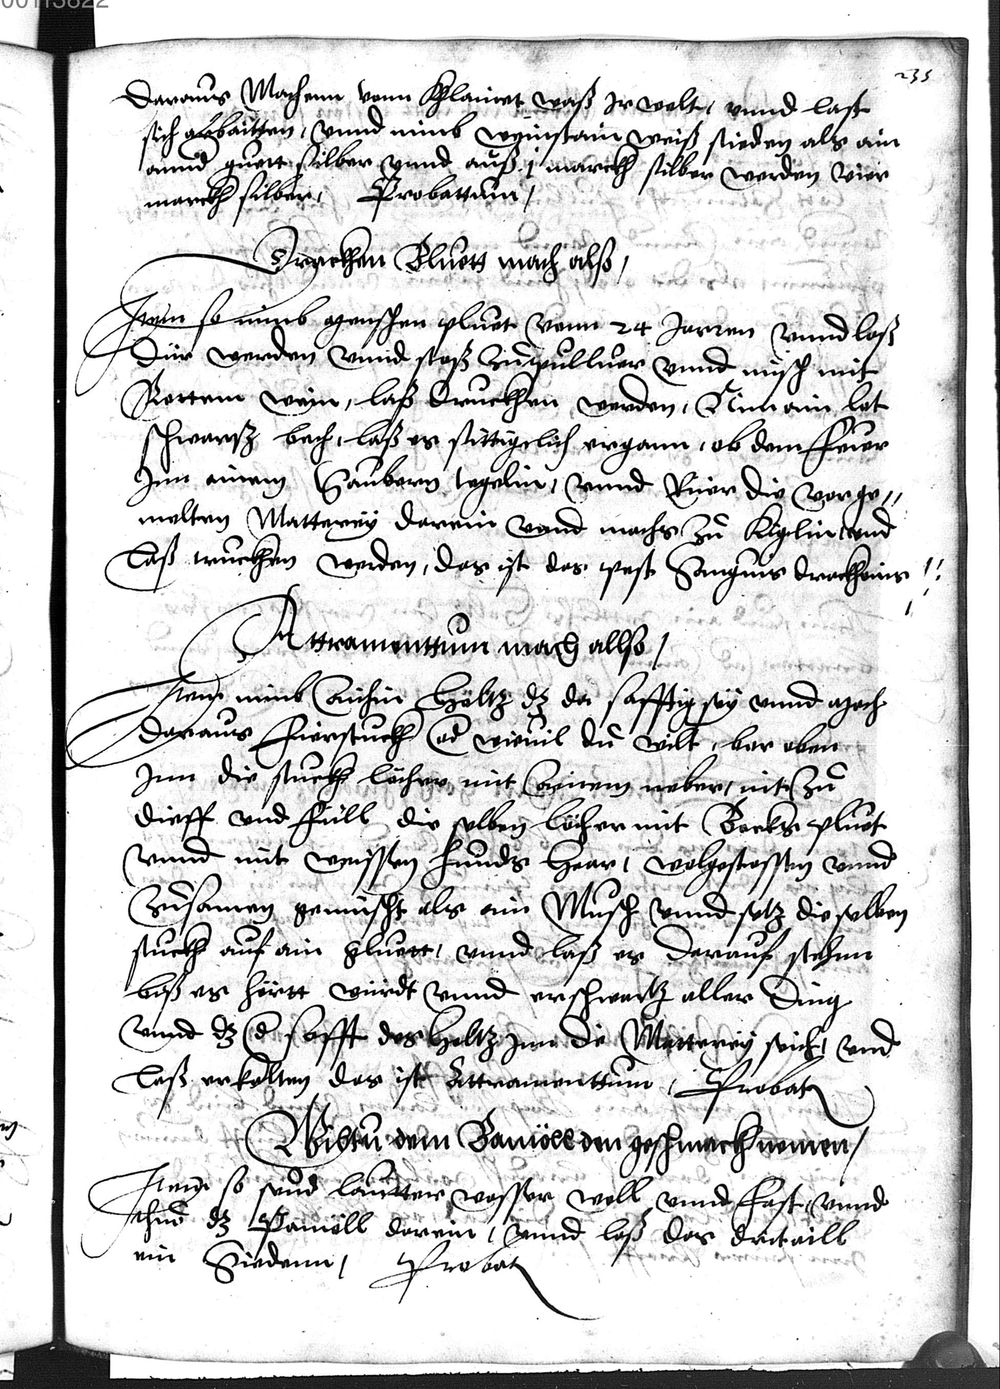 235
daraus Machenn vonn Khlainet waß Jr welt, vnnd last
sich arbaitten, vnnd nimb weinstain weiß sieden als ain
annd guett silber vnnd auß j marckh silber werden vier
marckh silber, Probattum,
Trackhen Bluett mach alß,
Item so nimb menschen pluet vonn 24 Jarren vnnd laß
dür werden vnnd stoß zu pulluer vnnd misch mit
Rottem wein, laß druckhen werden, Nim ain lot
schwartz bech, laß es sittigelich ergann, ob dem feuer
Inn ainem Saubern tegelin, vnnd Rüer die vorge//
melten Matterey darein vnnd machs zu Kiglin vnd
laß truckhen werden, das ist das pest Sanguis drackhonis
Attramenttum mach allso,
Item nimb Aichin holtz dz da safftig sey vnnd mach
daraus vierstuckh od wieuil du wilt, bor oben
Inn die stuckh löcher mit ainem neber, nit zu
dieff vnd füll die selben löcher mit Bockhs pluet
vnnd mit weissen hunds haar, wolgestossen vnnd
zusamen gemischt als ain Musch vnnd setz die selben
stuckh auf ain gluett, vnnd laß es darauf stehnn
biß es hörtt würdt vnnd erschwartz aller ding
vnnd dz d safft des holtz Inn die Matterey seich, vnd
laß erkalten das ist Attramenttum, Probat
Wiltu dem Bamöll den geschmackh nemen,
Item so seud lautter wasser woll vnnd fast vnnd
thue dz Pamöll darein, vnnd laß das drittaill
ein Siedenn, Probat